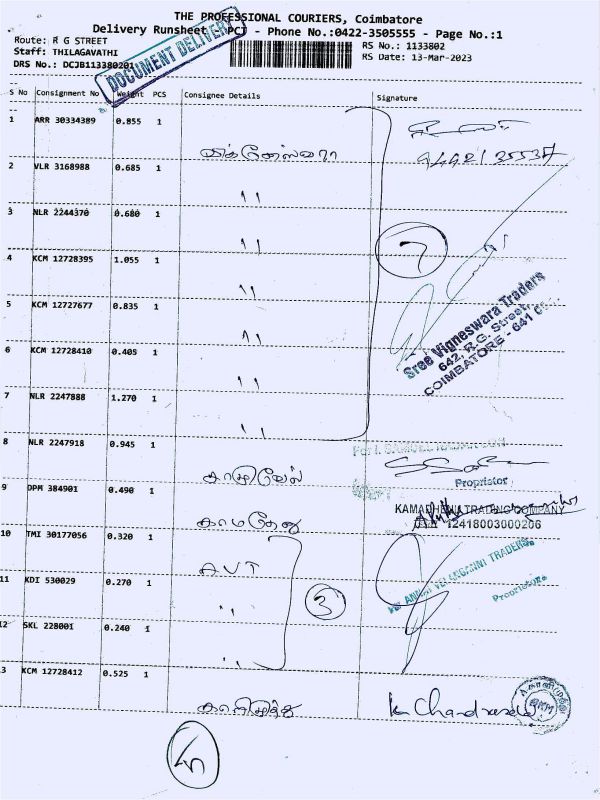 THE PROFESSIONAL COURIERS, Coimbatore
Delivery Runsheet - PCT - Phone No.:0422-3505555 - Page No.:1
Route: R G STREET
RS No.: 1133802
Staff: THILAGAVATHI
RS Date: 13-Mar-2023
DRS No.: DCJB113380201
DOCUMENT DELIVERY
S No Consignment No Weight PCS Consignee Details Signature
1 ARR 30334389 0.855 1
விக்னேஸ்வரா
2 VLR 3168988 0.685 1
"
3 NLR 2244370 0.680 1
"
4 KCM 12728395 1.055 1
"
7
5 KCM 12727677 0.835 1
"
Sree Vigneswara Traders
642, R.G. Street,
COIMBATORE - 641
6 KCM 12728410 0.405 1
"
7 NLR 2247888 1.270 1
"
8 NLR 2247918 0.945 1
Proprietor
9 DPM 384901 0.490 1
காமதேனு
KAMADHENU TRADING COMPANY
12418003000206
10 TMI 30177056 0.320 1
AVT
11 KDI 530029 0.270 1
"
3
For ANNAI VELANGANNI TRADERS
Proprietor
12 SKL 228001 0.240 1
"
13 KCM 12728412 0.525 1
காளிமுத்து
K Chandra